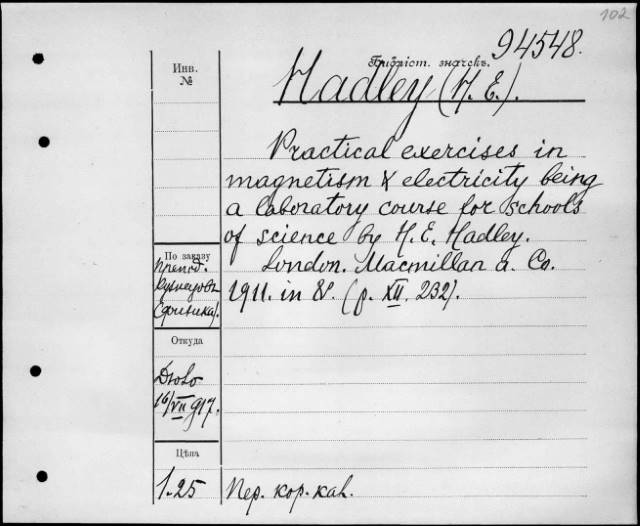 102
94548.
Библіот. значекъ.
Инв.
№
Hadley (H. E.).
Practical exercises in
magnetism & electricity being
a laboratory course for schools
of science by H. E. Hadley.
По заказу
препод.
Кузнецовъ
(физика).
London. Macmillan a. Co.
1911. in 8°. (p. XII. 232).
Откуда
16/VII 917.
Цѣна
1.25
Пер. кор. кал.